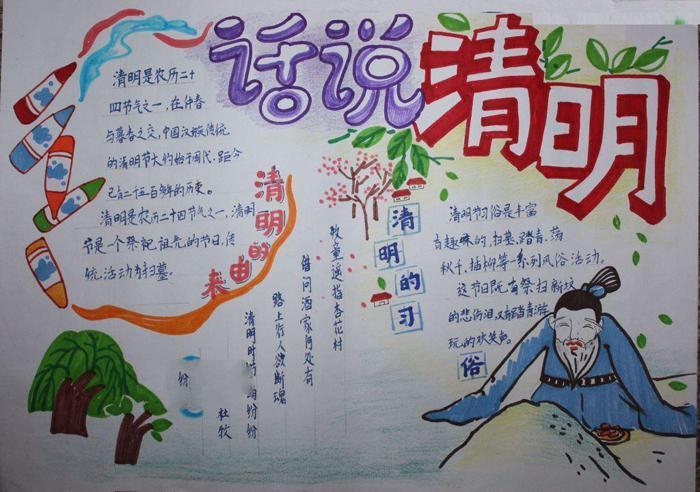 话说清明
清明是农历二十
四节气之一，在仲春
与暮春之交，中国汉族传统
的清明节大约始于周代，距今
已有二千五百多年的历史。
清明是农历二十四节气之一，清明
节是一个祭祀祖先的节日，传
统活动为扫墓。
清明的由来
份
杜牧
清明时节雨纷纷
路上行人欲断魂
借问酒家何处有
牧童遥指杏花村
清明的习俗
清明节习俗是丰富
有趣味的，扫墓、踏青、荡
秋千、插柳等一系列风俗活动。
这节日既有祭扫新坟
的悲伤泪，又有踏青游
玩的欢笑声。